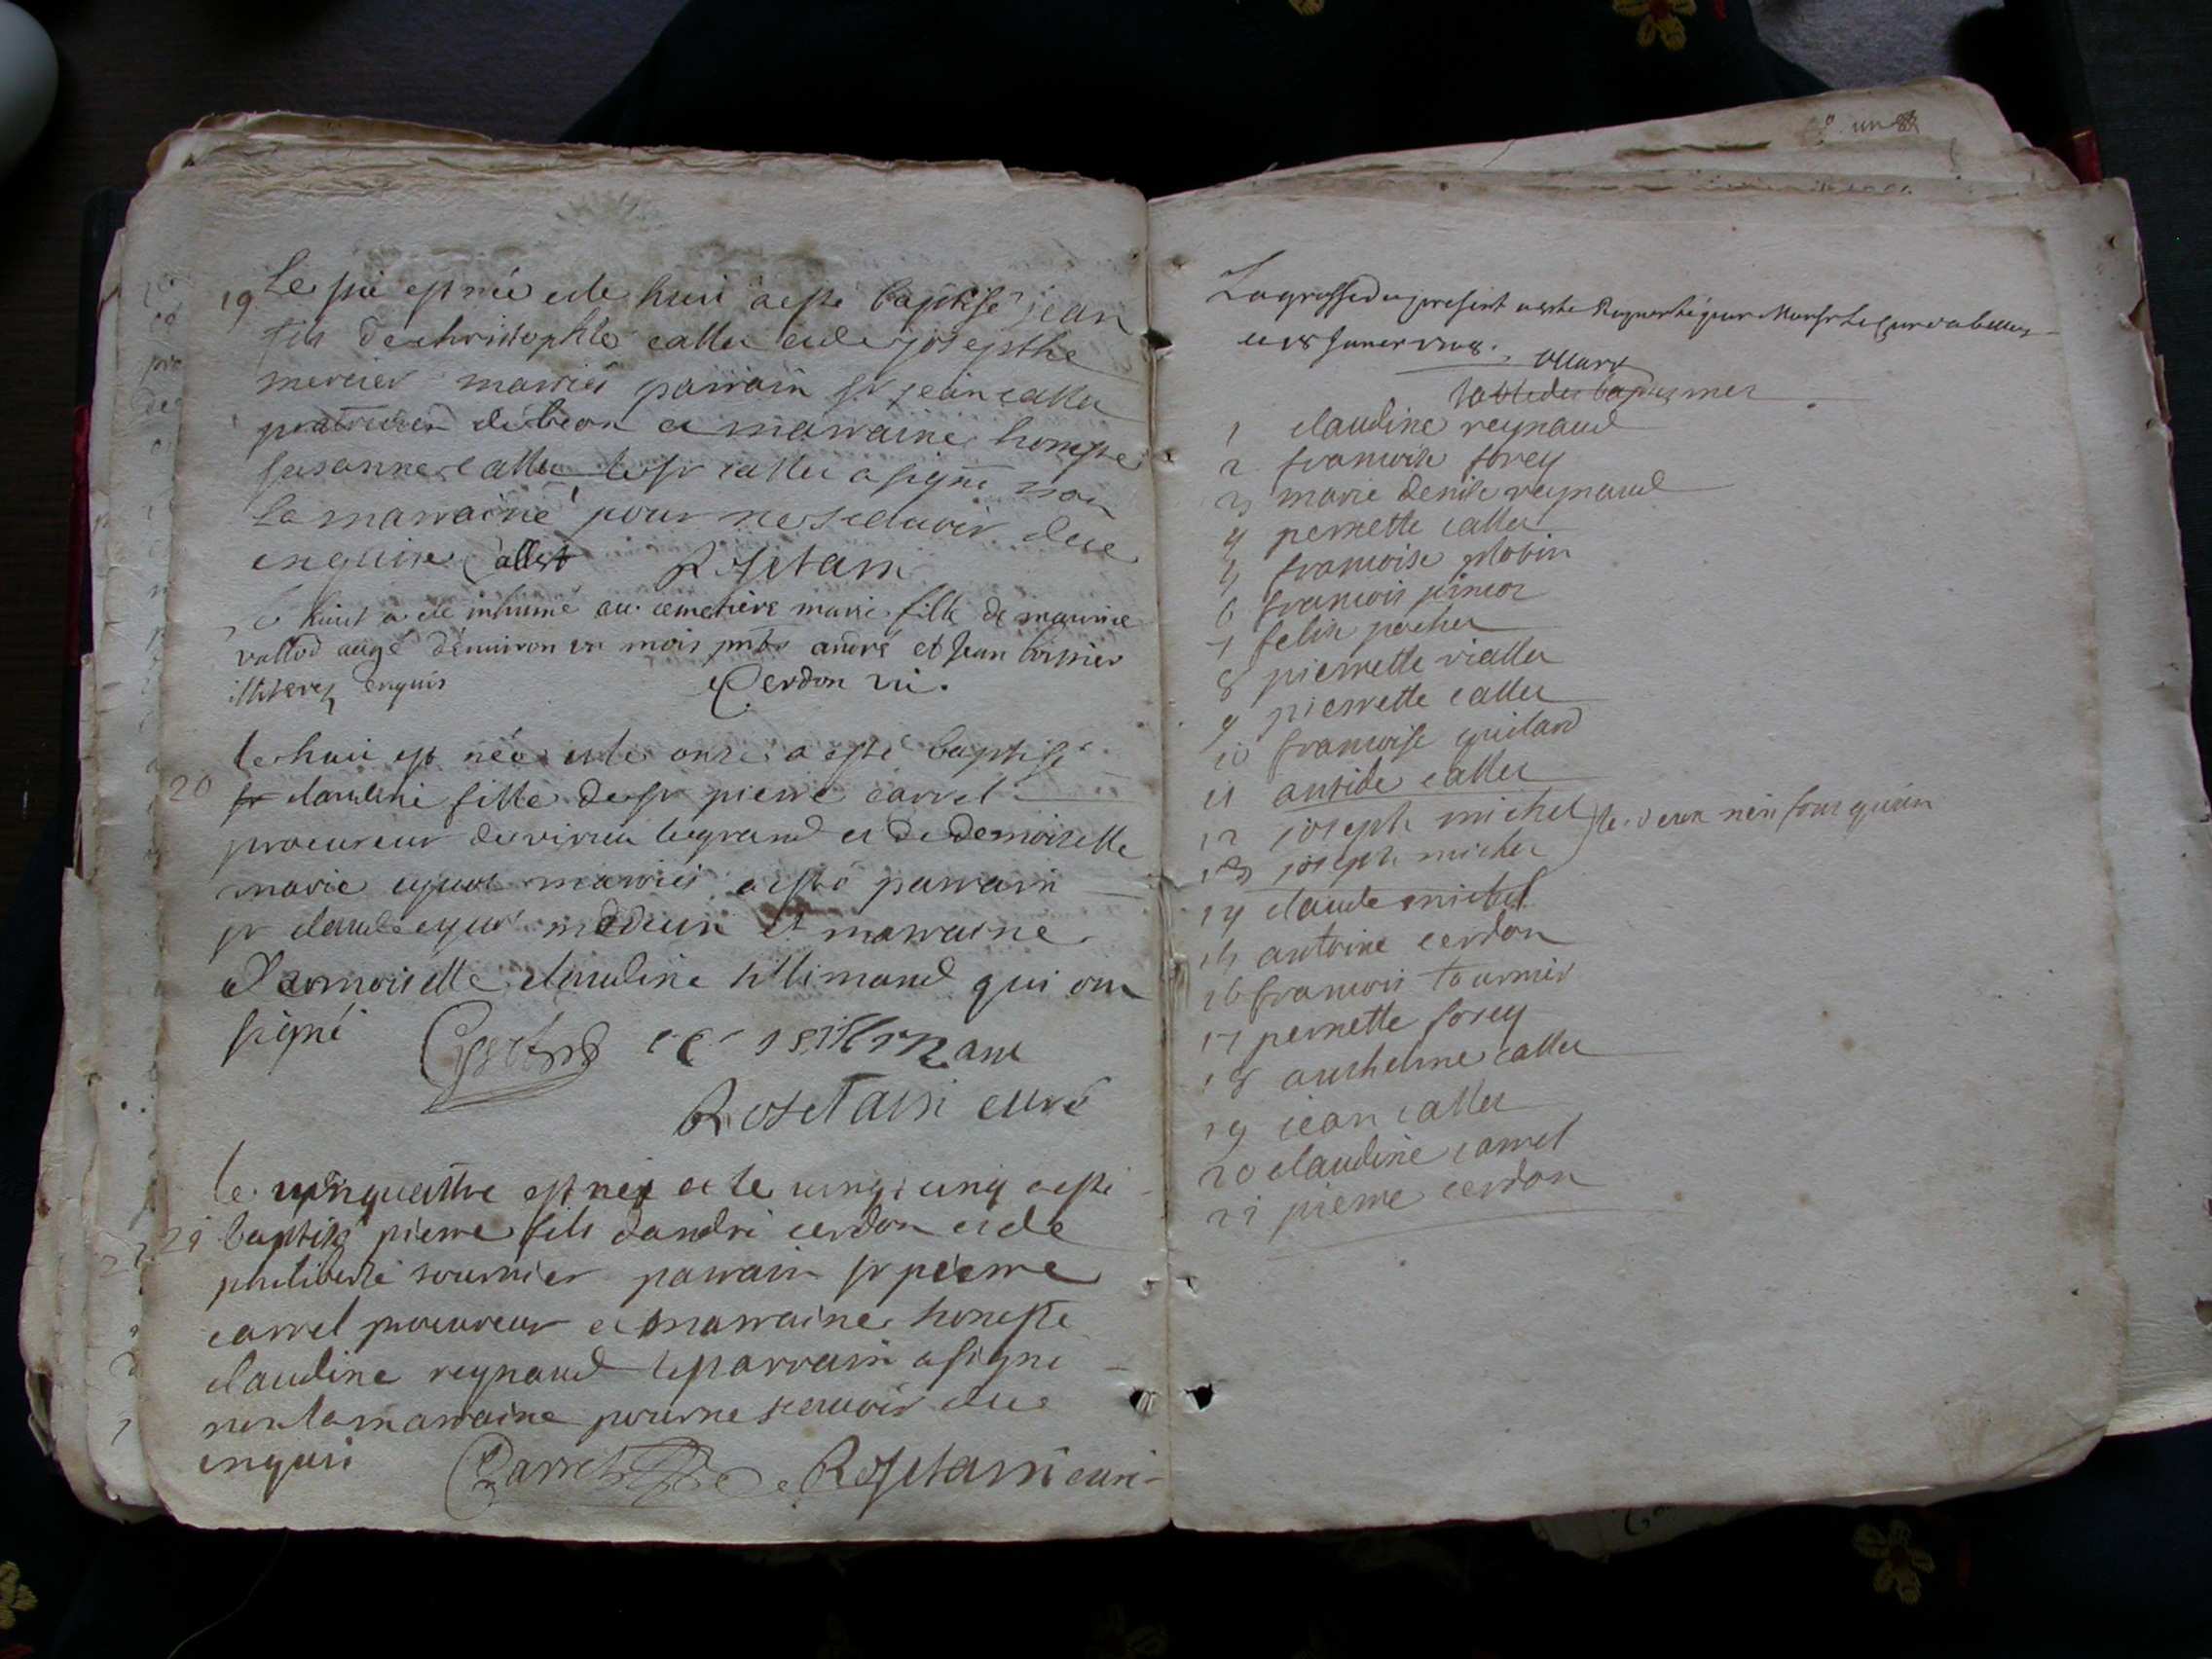 19 Le six est née et le huit a esté baptisé jean
fils de christophle caller et de josepthe
mercier mariés parrain sr jean caller
de beon et marraine honeste
susanne caller le sr caller a signé non
la marraine pour ne scavoir de ce
enquise Caller Rosetain
huit a été inhumé au cemetiere marie fille de maurice
vallod augé d'environ un mois pntz andré et Jean
illiterez enquis Cerdon vic.
le huit est née et le onze a esté baptisé
20 claudine fille de sr pierre carrel
procureur de virieu le grand et de demoiselle
marie mariés a esté parrain
sr claude medecin et marraine
Damoiselle claudine sillimand qui ont
signé
Rosetain curé
le vingquattre est né et le vingt cinq a esté
21 baptisé pierre fils dandré cerdon et de
philiberte tournier parrain sr pierre
carrel procureur et marraine honeste
claudine reynaud le parrain a signé
non la marraine pour ne scavoir de ce
enquis Carrel Rosetain curé
La grosse du present a esté Raportée par Monsr Le curé
le 18 Janvier
Table des baptesmes
1 claudine reynaud
2 francoise forey
3 marie denise reynaud
4 pernette caller
5 francoise plobin
6 francois
7 felix pocher
8 pierrette vialler
9 pierrette caller
10 francoise guilard
11 caller
12 joseph michel
13 joseph michel
14 claude michel
15 antoine cerdon
16 francois tournier
17 pernette forey
18 anthelme caller
19 jean caller
20 claudine carrel
21 pierre cerdon